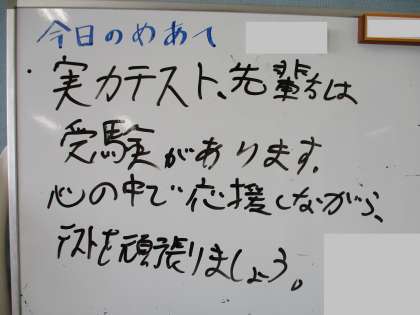 今日のめあて
・実力テスト、先輩方は
受験があります。
心の中で応援しながら、
テストを頑張りましょう。